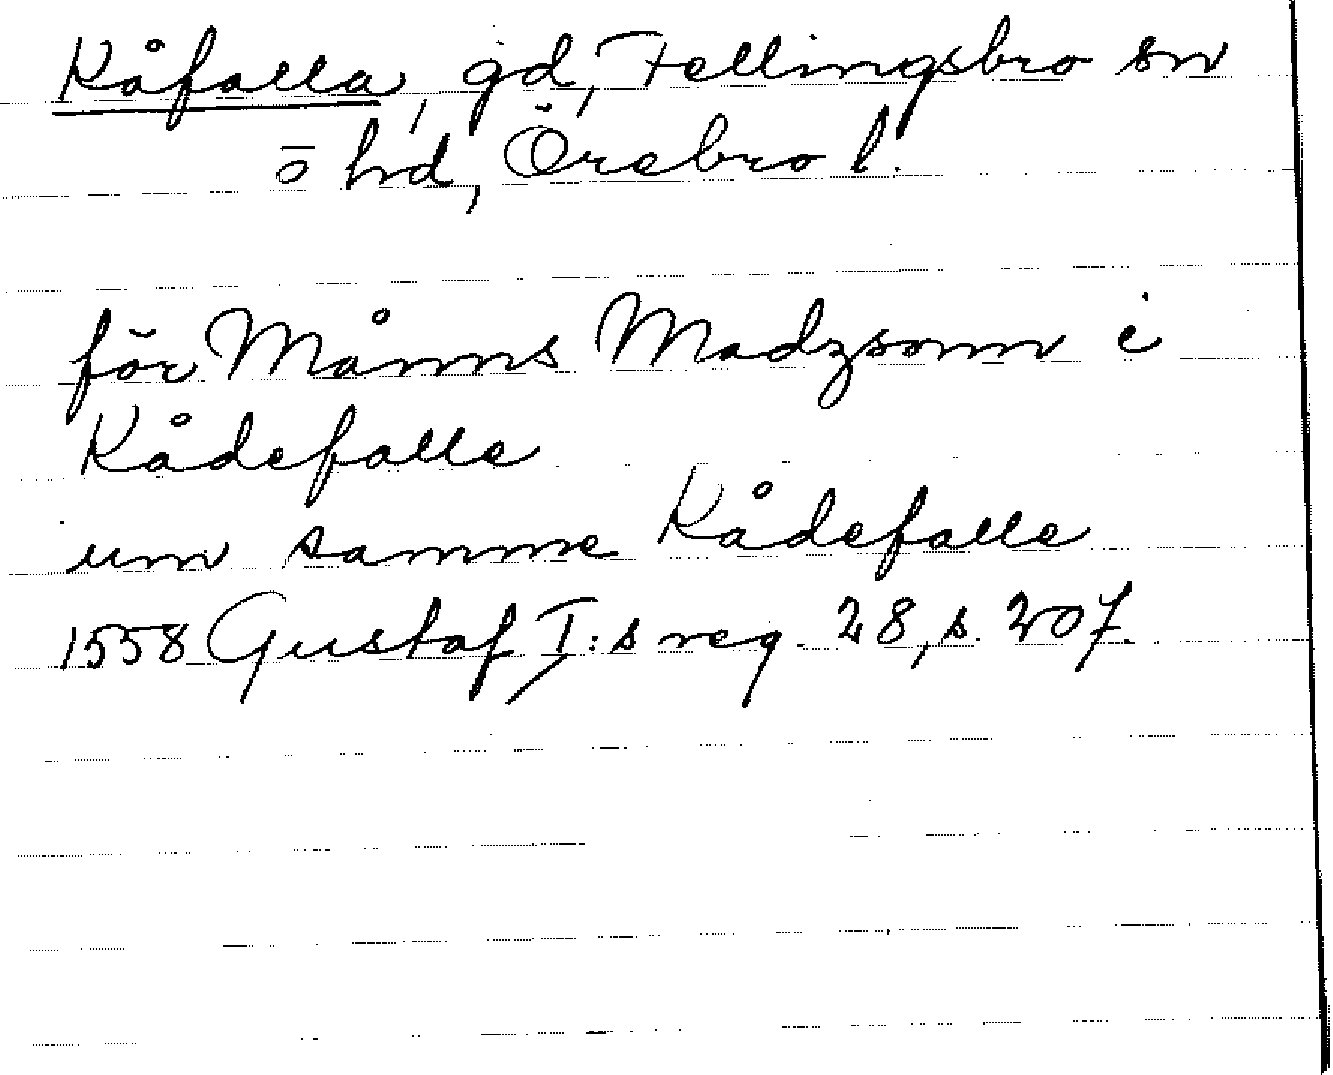 Kåfalla, gd, Fellingsbro sn
ō hd, Örebro l.
för Måns Madzsonn i
Kådefalle
um samme Kådefalle
1558 Gustaf I:s reg. 28, s. 207